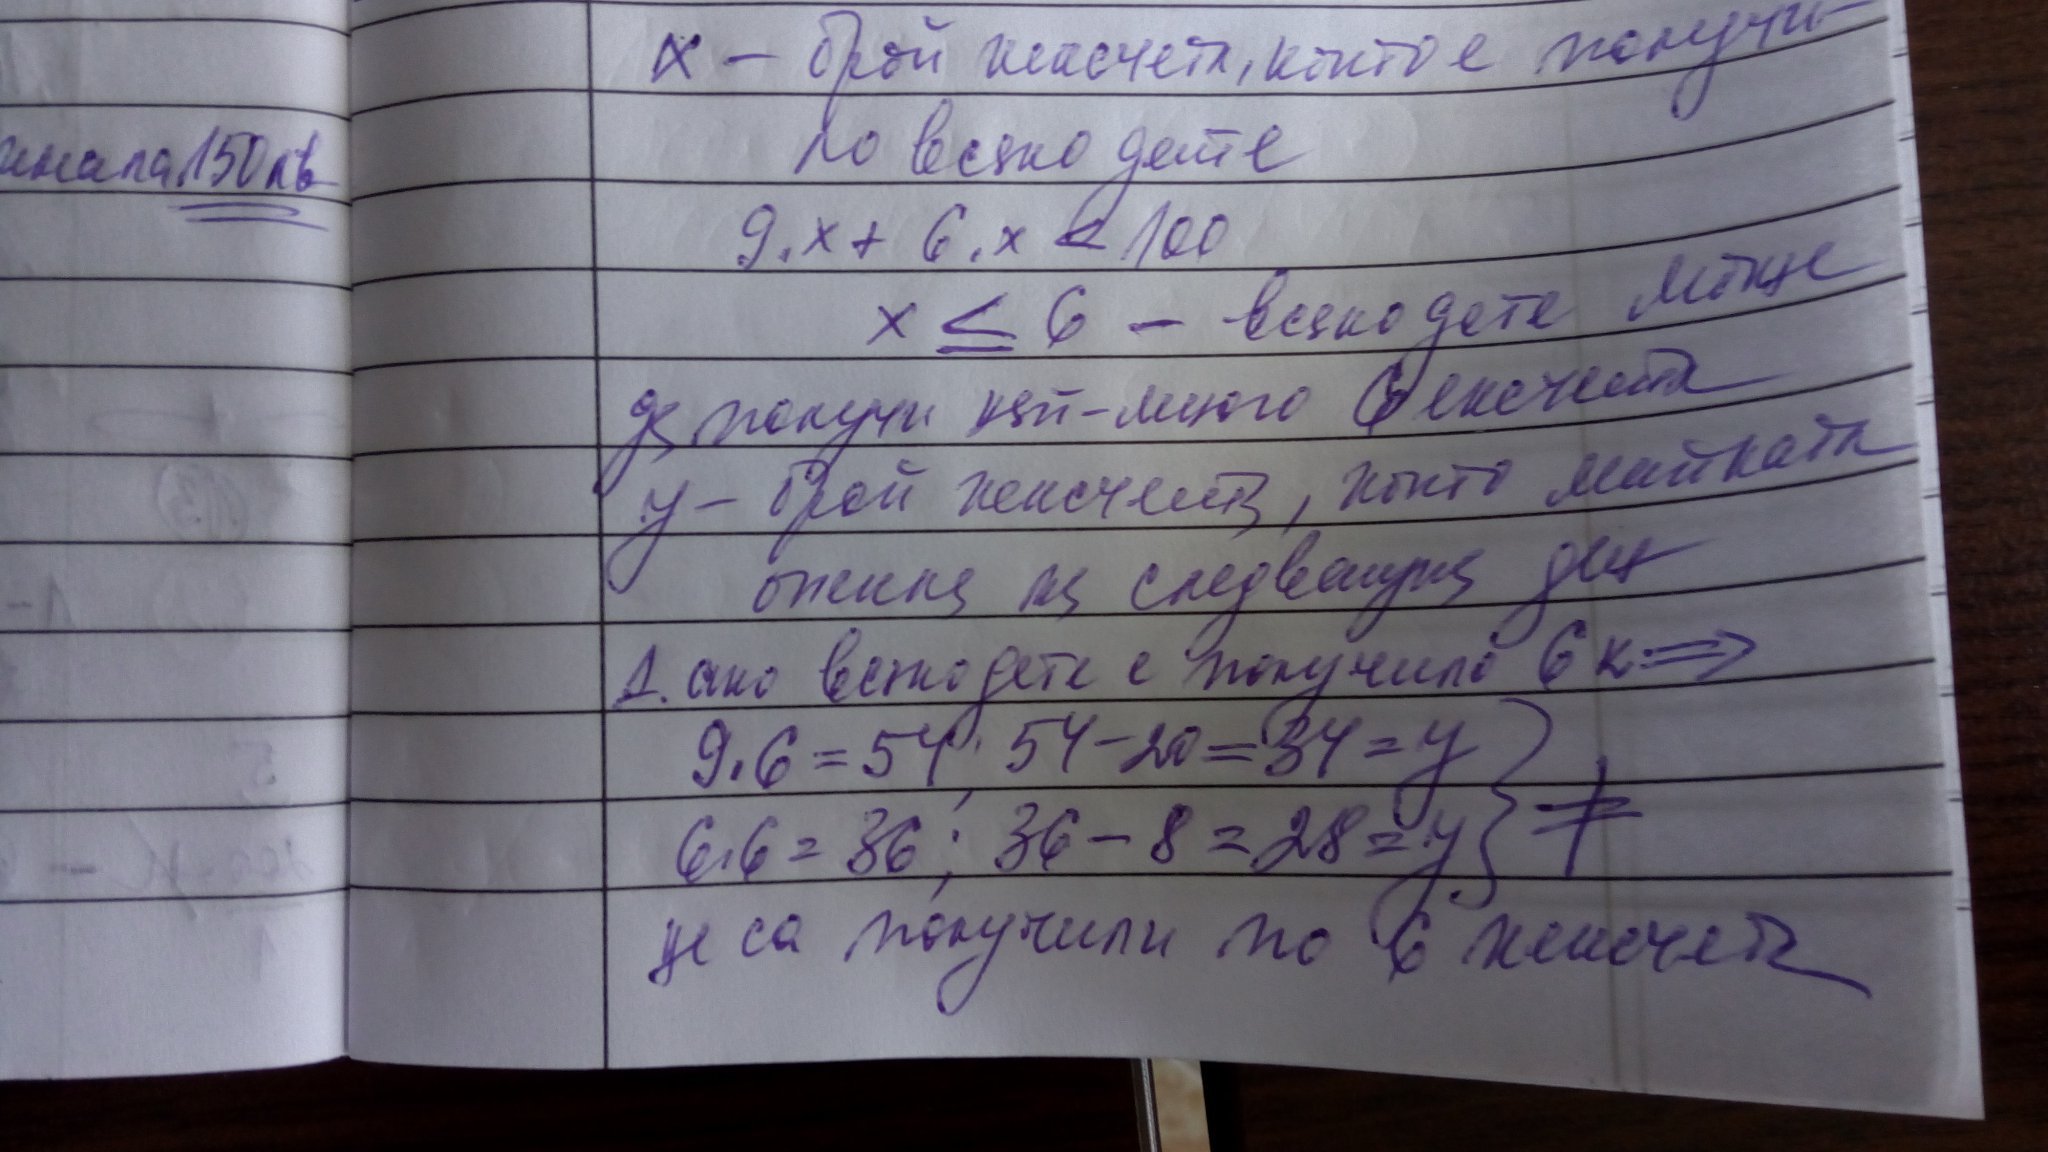 анала 150 лв
x – брой кексчета, които е получи-
ло всяко дете
9.x + 6.x < 100
x ≤ 6 – всяко дете може
да получи най-много 6 кексчета
y – брой кексчета, които майката
на следващия ден
1. ако всяко дете е получило 6 к. ⇒
9.6 = 54; 54 – 20 = 34 = y } ≠
6.6 = 36; 36 – 8 = 28 = y
не са получили по 6 кексчета